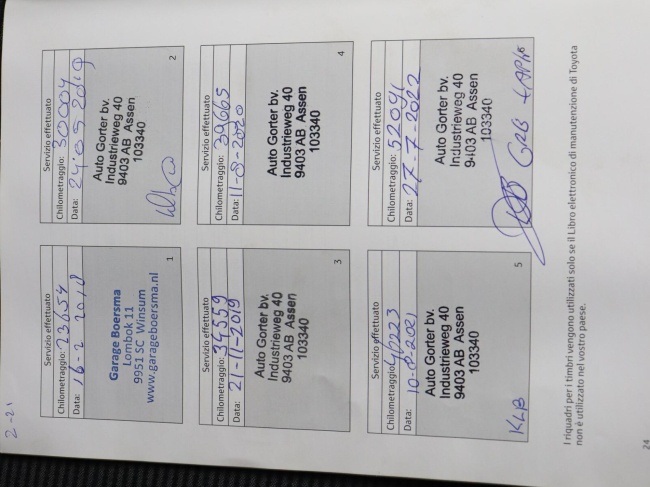 2-21
Servizio effettuato
Chilometraggio: 23654
Data: 16-2 2018
Garage Boersma
Lombok 11
9951 SC Winsum
www.garageboersma.nl
1
Servizio effettuato
Chilometraggio: 30004
Data: 24-05-2019
Auto Gorter bv.
Industrieweg 40
9403 AB Assen
103340
2
Servizio effettuato
Chilometraggio: 34559
Data: 21-11-2019
Auto Gorter bv.
Industrieweg 40
9403 AB Assen
103340
3
Servizio effettuato
Chilometraggio: 39665
Data: 11-8-2020
Auto Gorter bv.
Industrieweg 40
9403 AB Assen
103340
4
Servizio effettuato
Chilometraggio: 41223
Data: 10-8-2021
Auto Gorter bv.
Industrieweg 40
9403 AB Assen
103340
KLB
5
Servizio effettuato
Chilometraggio: 52091
Data: 27-7-2022
Auto Gorter bv.
Industrieweg 40
9403 AB Assen
103340
6
I riquadri per i timbri vengono utilizzati solo se il Libro elettronico di manutenzione di Toyota
non è utilizzato nel vostro paese.
24